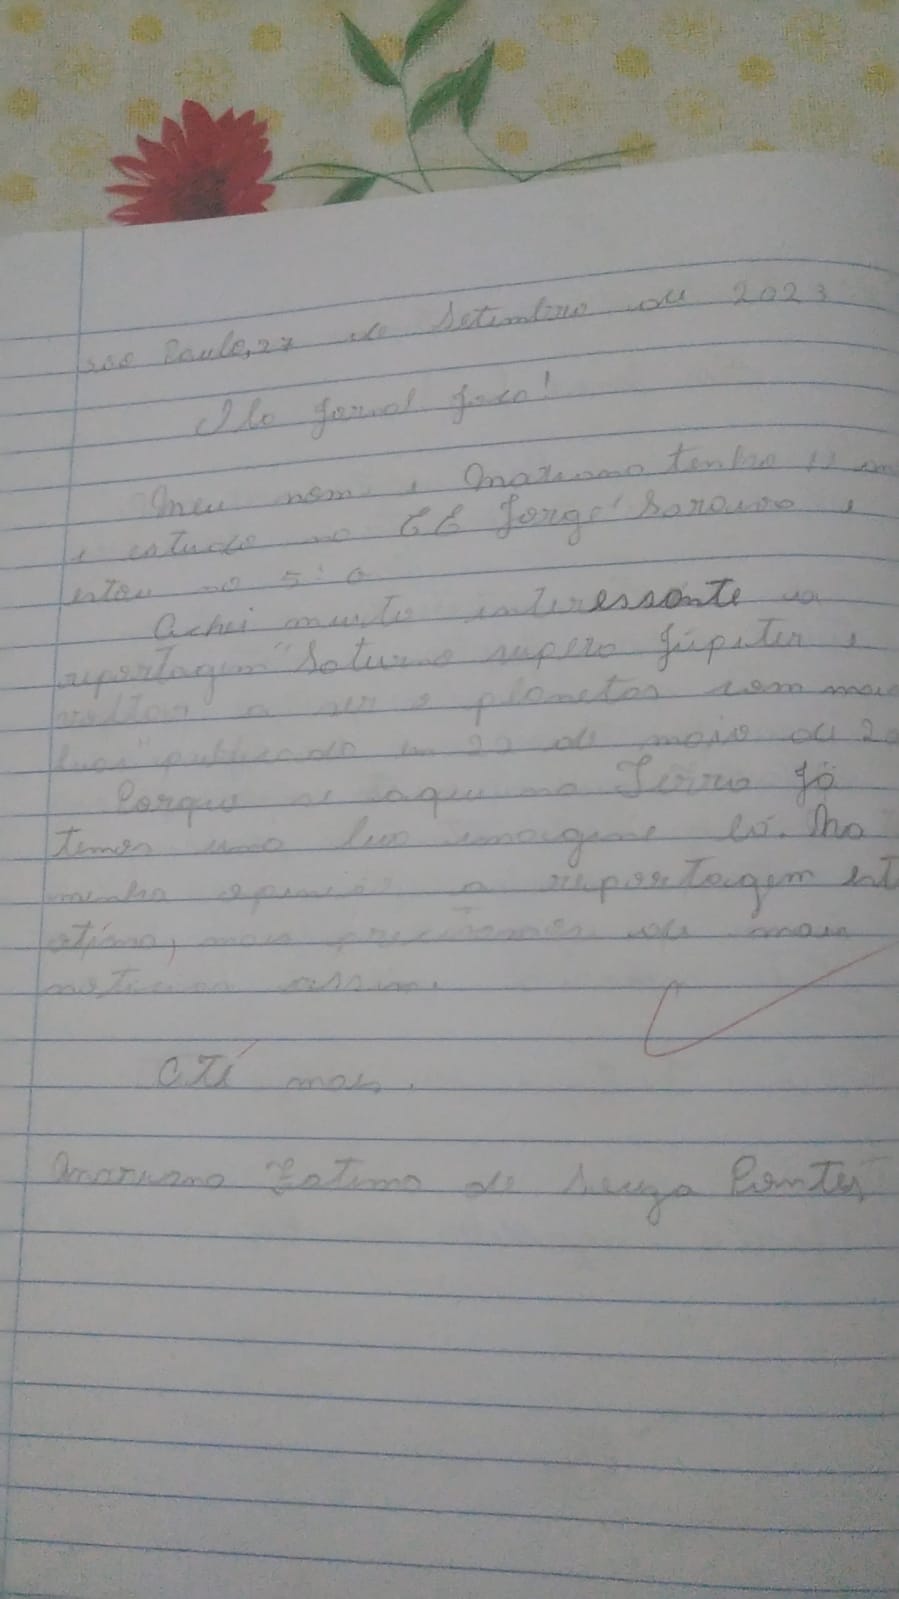 São Paulo, 27 de Setembro de 2023
Alo Jornal Joca!
Meu nome é Mariana tenho 11 an
e estudo no EE Jorge Saraiva e
estou no 5º a
Achei muito interessante a
reportagem "Saturno supera Júpiter e
voltar a ser o planetas com mais
luas" publicado em 22 de maio de 20
Porque se aqui na Terra já
temos uma lua imagine lá. Na
minha opinião a reportagem está
otima, mais precisamos de mais
noticias assim.
até mais.
Mariana Fatima de Souza Pontes